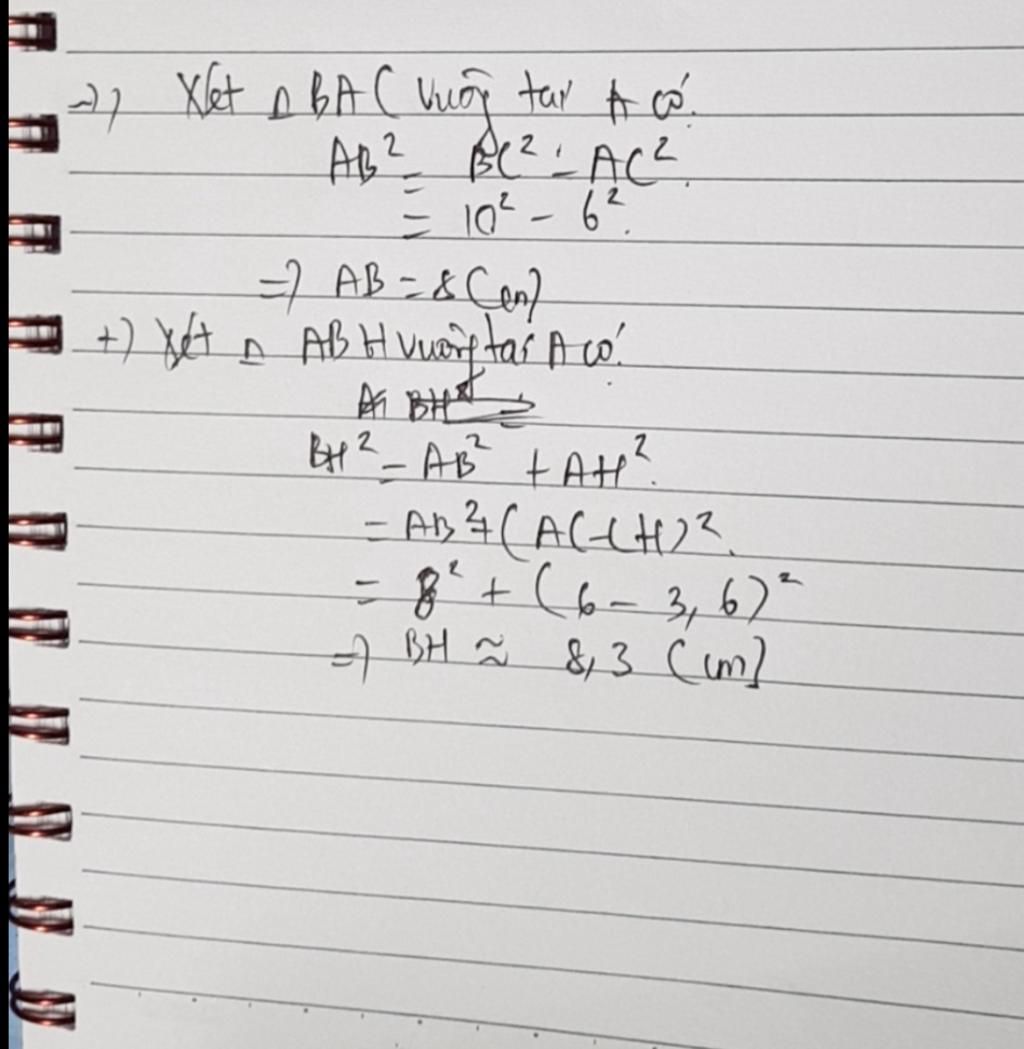 =) Xét Δ BAC vuông tại A có:
AB² = BC² - AC².
= 10² - 6².
=) AB = 8 (cm)
+) Xét Δ ABH vuông tại A có:
BH
BH² = AB² + AH².
= AB² + (AC-CH)².
= 8² + (6 - 3,6)²
=) BH ≈ 8,3 (cm)